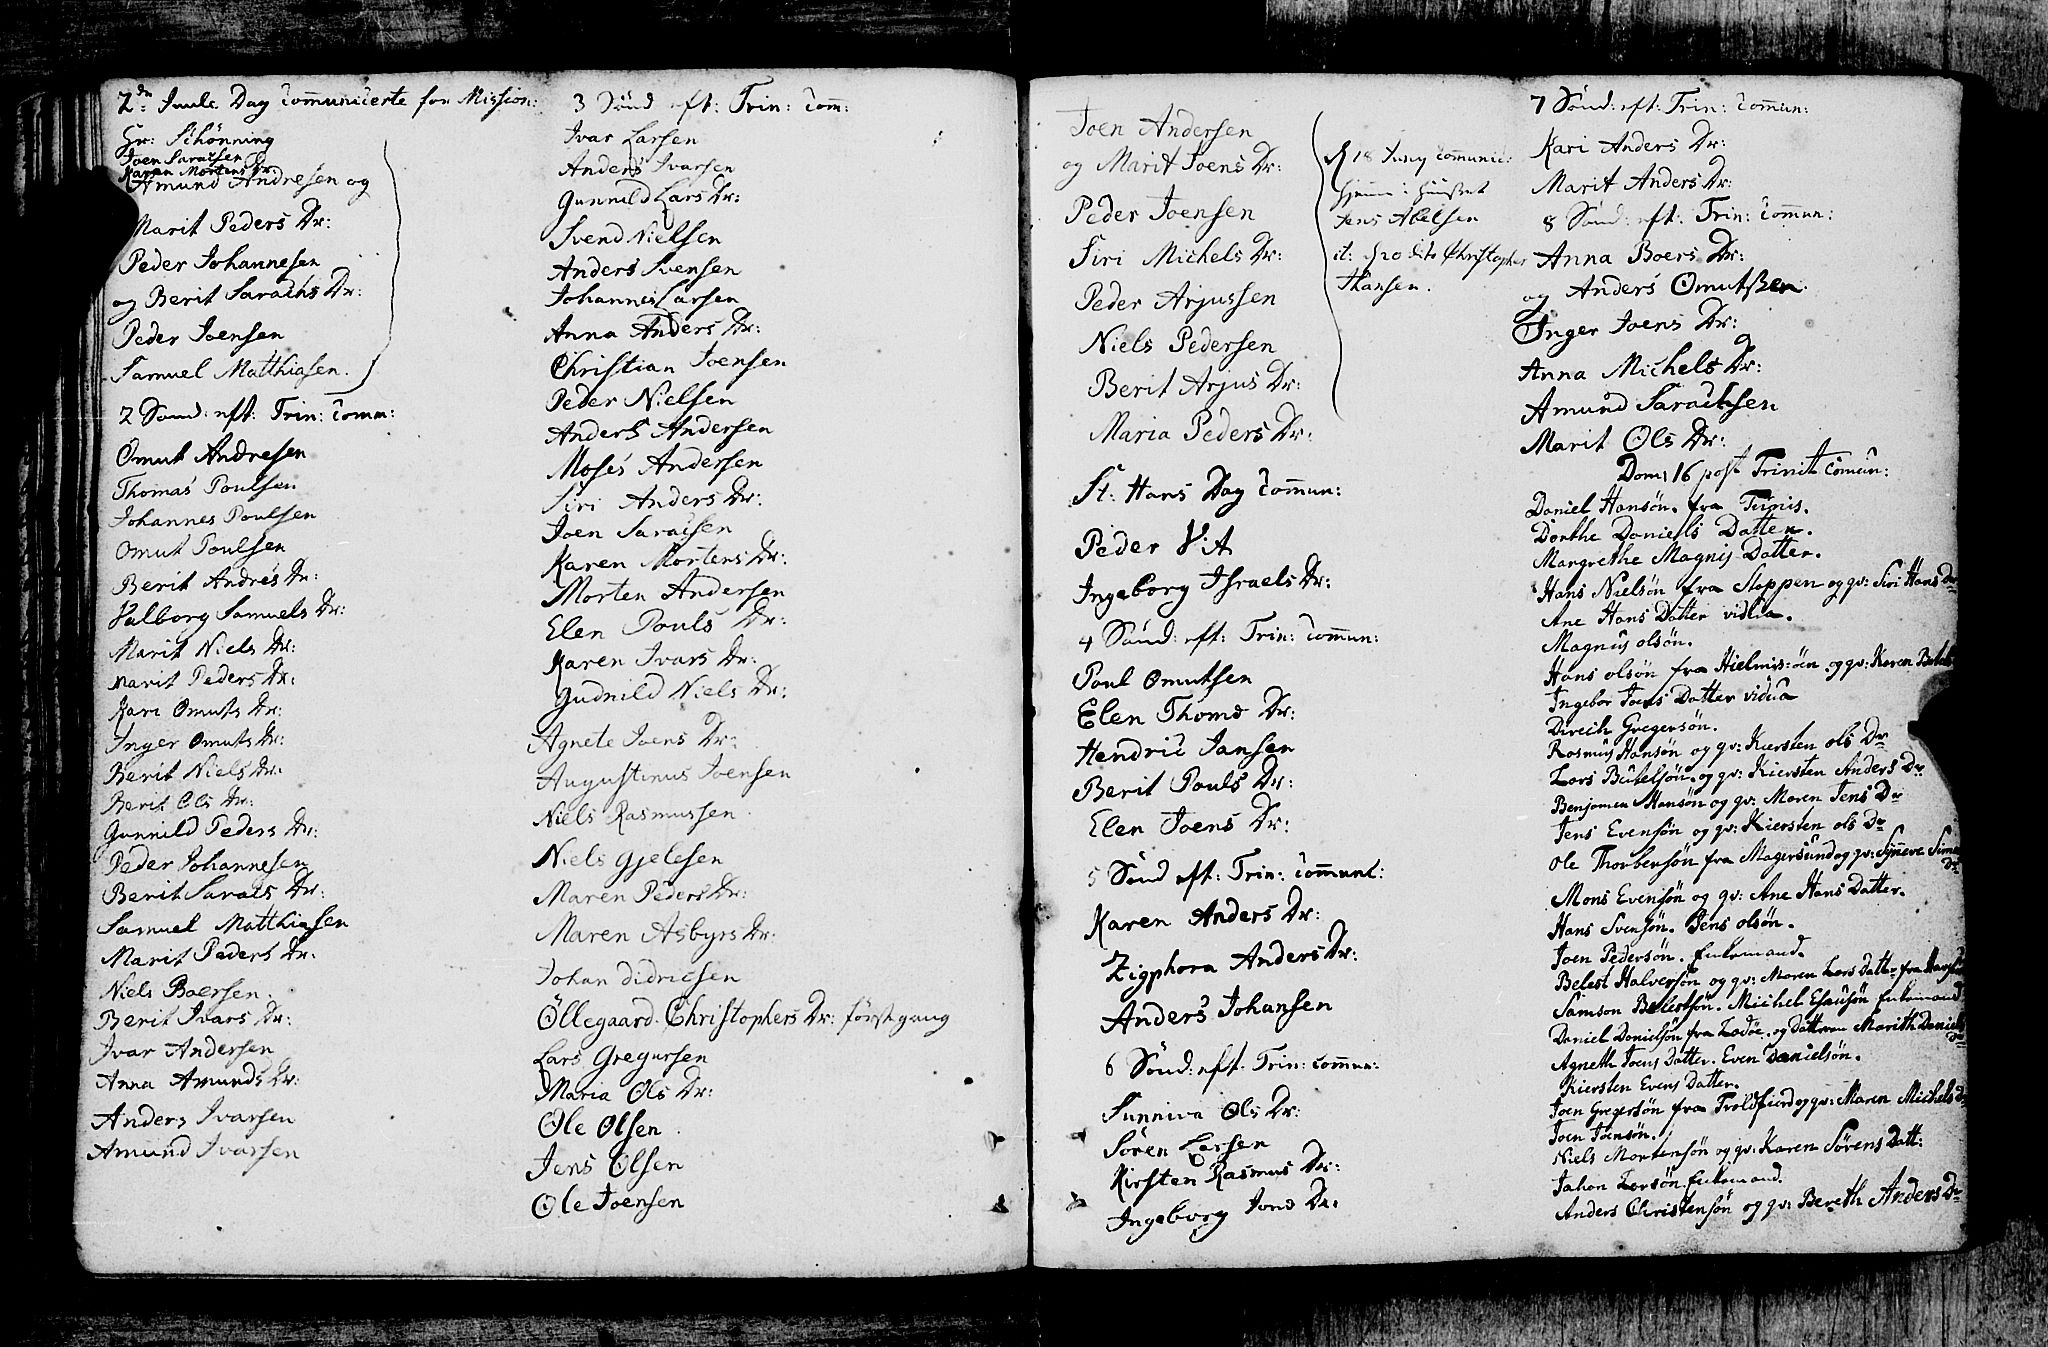 2dn Juule Dag Communicerte for Mission:
Hr: Schönning
Joen Saracsen
Karen Mortens Dr
Amund Andresen og
Marit Peders Dr:
Peder Johannesen
og Berit Sarachs Dr:
Peder Joensen
Samuel Matthiasen.
2 Sönd: eft: Trin: Comm:
Omut Andresen
Thomas Poulsen
Johannes Poulsen
Omut Poulsen
Berit Andrés Dr:
Valborg Samuels Dr:
Marit Niels Dr:
Marit Peders Dr:
Kari Omuts Dr:
Inger Omuts Dr:
Berit Niels Dr:
Berit Ols Dr:
Gunnild Peders Dr:
Peder Johannesen
Berit Saracs Dr:
Samuel Matthiasen
Marit Peders Dr:
Niels Boersen.
Berit Ivars Dr:
Ivar Andersen
Anna Amunds Dr:
Anders Ivarsen
Amund Ivarsen
3 Sönd eft: Trin: Com:
Ivar Larsen
Anders Ivarsen
Gunnild Lars Dr:
Svend Nielsen
Anders Svensen
Johannes Larsen
Anna Anders Dr:
Christian Joensen
Peder Nielsen
Anders Andersen
Moses Andersen
Siri Anders Dr:
Joen Saracsen
Karen Mortens Dr:
Morten Andersen
Elen Pouls Dr:
Karen Ivars Dr:
Gudnild Niels Dr:
Agnete Joens Dr:
Augustinus Joensen
Niels Rasmussen
Niels Gjelesen
Maren Peders Dr:
Maren Asbyrs Dr:
Johan Didricsen
Öllegaard Christophers Dr: förste gang
Lars Gregersen
Maria Ols Dr:
Ole Olsen
Jens Olsen
Ole Joensen
Joen Andersen
og Marit Joens Dr:
Peder Joensen
Siri Michels Dr:
Peder Arjussen
Niels Pedersen
Berit Arjus Dr:
Maria Peders Dr:
18 Juny Communic:
hjemme i Huuset
Jens Abelsen
it: d 20 dito Christopher
Hansen.
St: Hans Dag Commun:
Peder
Ingeborg Israels Dr:
4 Sönd: eft: Trin: Commun:
Poul Omutsen
Elen Thoms Dr:
Hendric Jansen
Berit Pouls Dr:
Elen Joens Dr:
5 Sönd eft: Trin: Communi:
Karen Anders Dr:
Zigphora Anders Dr:
Anders Johansen
6 Sönd: eft: Trin: Commun:
Sunniva Ols Dr:
Sören Larsen
Kirsten Rasmus Dr:
Ingeborg Jons Dr:
7 Sönd: eft: Trin: Commun:
Kari Anders Dr:
Marit Anders Dr:
8 Sönd: eft: Trin: Commun:
Anna Boers Dr:
og Anders Omutsen
Inger Joens Dr:
Anna Michels Dr:
Amund Saracksen
Marit Ols Dr:
Dom: 16 post Trinit Comun:
Daniel Hansön. fra Finnis.
Dorthe Daniels Datter.
Margrethe Magnis Datter.
Hans Nielsön fra Stoppen og qv: Siri Hans Dr
Ane Hans Datter vidua.
Magnus olsön.
Hans olsön fra Hielmis-öen og qv: Karen Belests
Ingebor Joens Datter vidua
Direch Gregersön.
Rasmus Hansön og qv: Kiersten ols Dr
Lars Bütelsön. og qv: Kiersten Anders Dr
Benjamen Hansön og qv: Maren Jens Dr
Jens Evensön og qv: Kiersten ols Dr
Ole Thorbersön fra Magersund og qv: Synneve Simens
Dr
Mons Evensön og qv: Ane Hans Datter.
Hans Svensön. Jens olsön.
Joen Pedersön. Enkemand.
Belest Halversön og qv: Maren Lars datter fra
Samson Belestsön. Michel Esausön Enkemand
Daniel Danielsön fra Ladöe og datteren Marith Daniels
Dr
Agneth Joens Datter. Even Danielsön.
Kiersten Evens Datter.
Joen Gregersön fra Troldfiord og qv: Maren Michels Dr
Joen Joensön.
Niels Mortensön og qv: Karen Sörens Datt:
Johan Larsön Enkemand
Anders Christensön og qv: Bereth Anders Dr